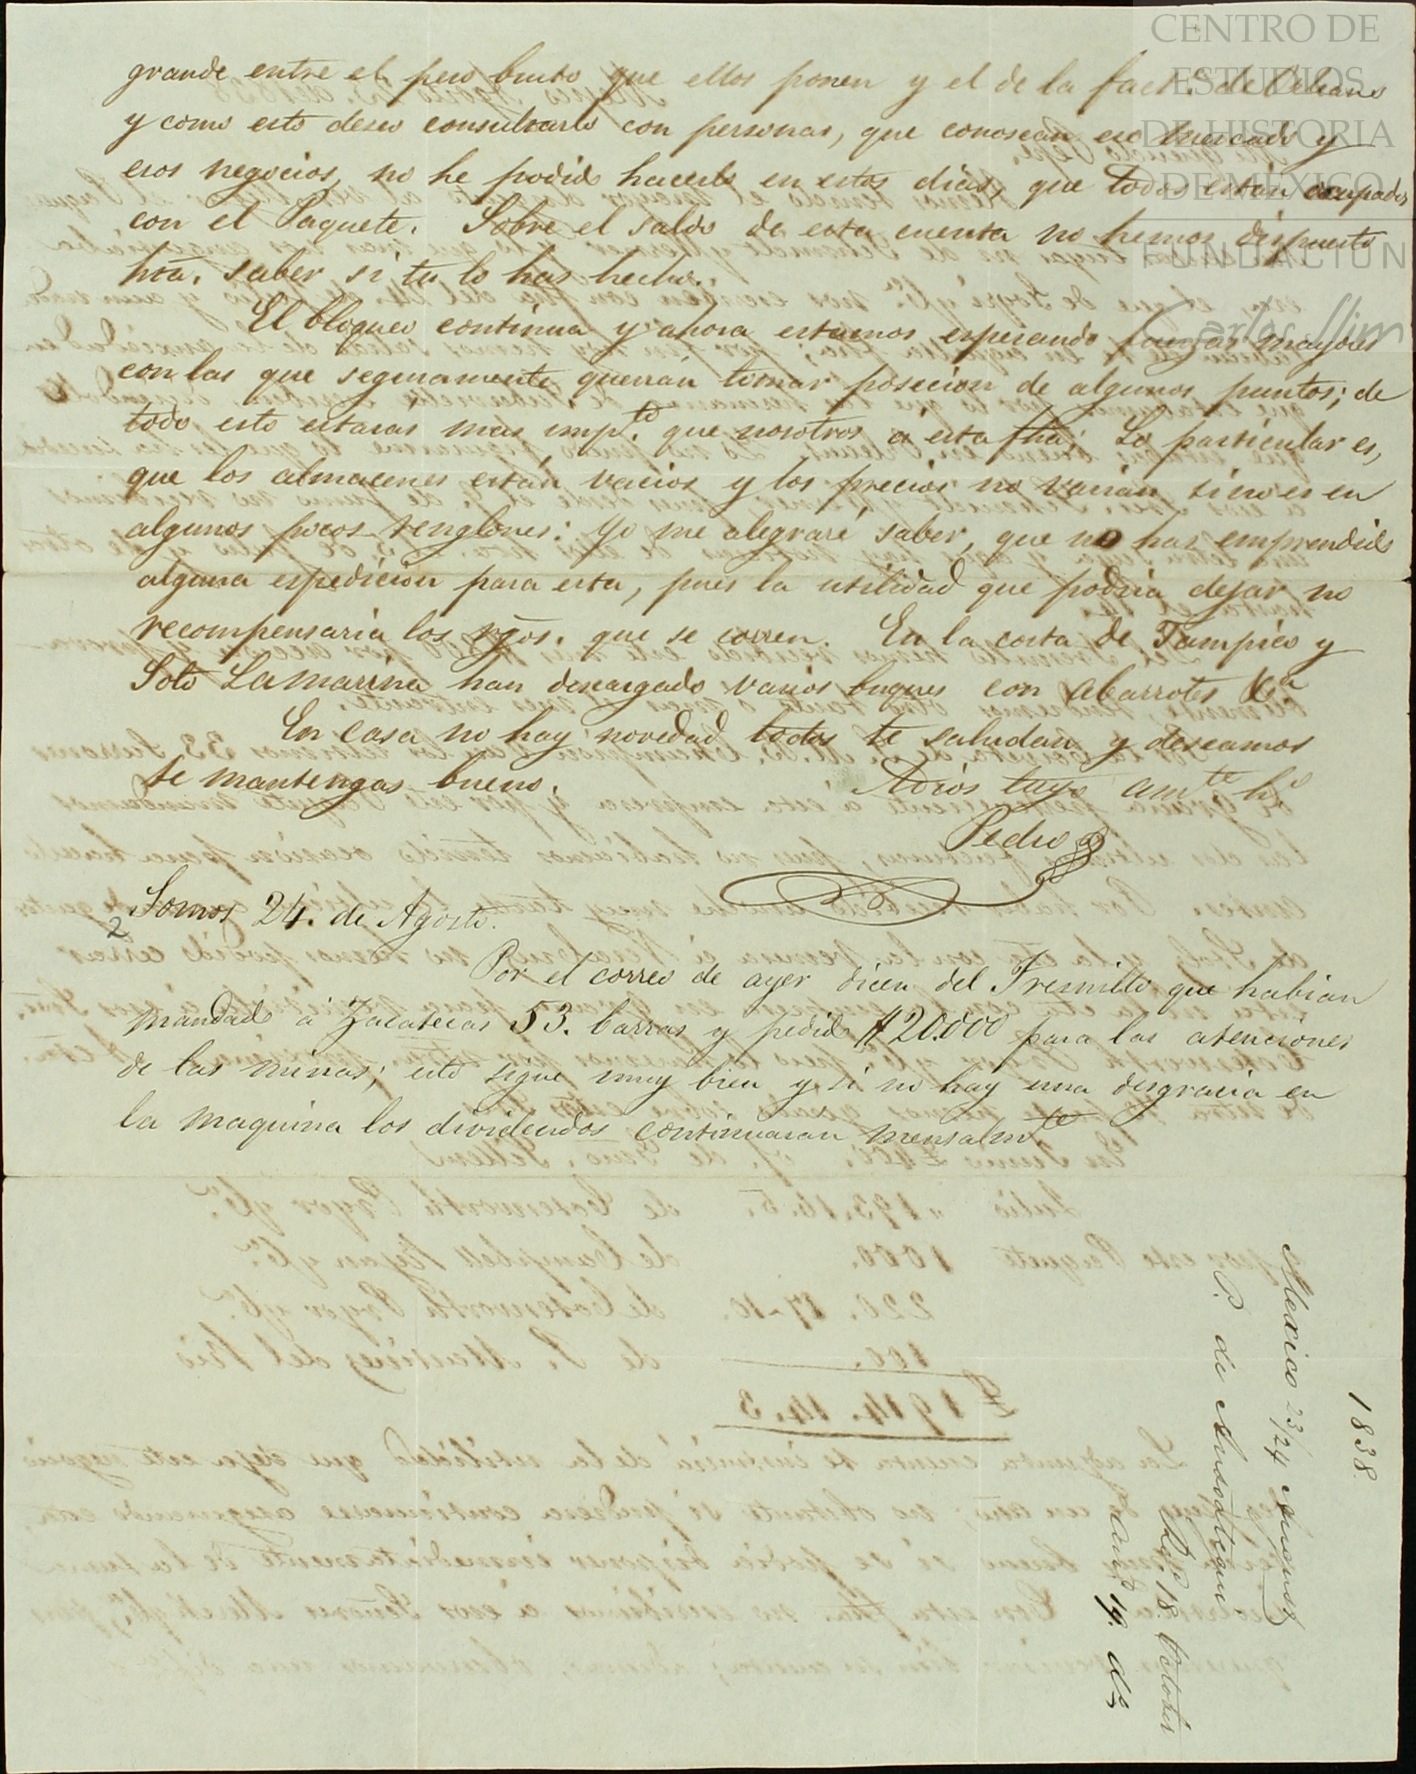 CENTRO DE
ESTUDIOS
DE HISTORIA
DE MÉXICO
FUNDACIÓN
Carlos Slim
grande entre el peso bruto que ellos ponen y el de la fact.ª de Orleans
y como esto deseo consultarlo con personas, que conoscan ese mercado y
esos negocios, no he podido hacerlo en estos dias, que todos estan ocupados
con el Paquete. Sobre el saldo de esta cuenta no hemos dispuesto
hta. saber si tu lo has hecho.
El bloqueo continua y ahora estamos esperando fuerzas mayores
con las que seguramente querran tomar posecion de algunos puntos; de
todo esto estaras mas imp.to que nosotros á esta fha; Lo particular es,
que los almacenes están vacios y los precios no varian sino es en
algunos pocos renglones: Yo me alegraré saber, que no has emprendido
alguna espedicion para esta, pues la utilidad que podria dejar no
recompensaria los rgos. que se corren. En la costa de Tampico y
Soto Lamarina han descargado varios buques con abarrotes &a
En casa no hay novedad todos te saludan y deseamos
te mantengas bueno. Adios tuyo am.te h.o
Pedro
2 Somos 24. de Agosto.
Por el correo de ayer dicen del Fresnillo que habian
mandado á Zacatecas 53. barras y pedido $20.000 para las atenciones
de las minas; esto sigue muy bien y si no hay una desgracia en
la maquina los dividendos continuaran mensalm.te
1838.
Mexico 23/24 August
P. de Ansoategui
Rp. 18. October
19. do